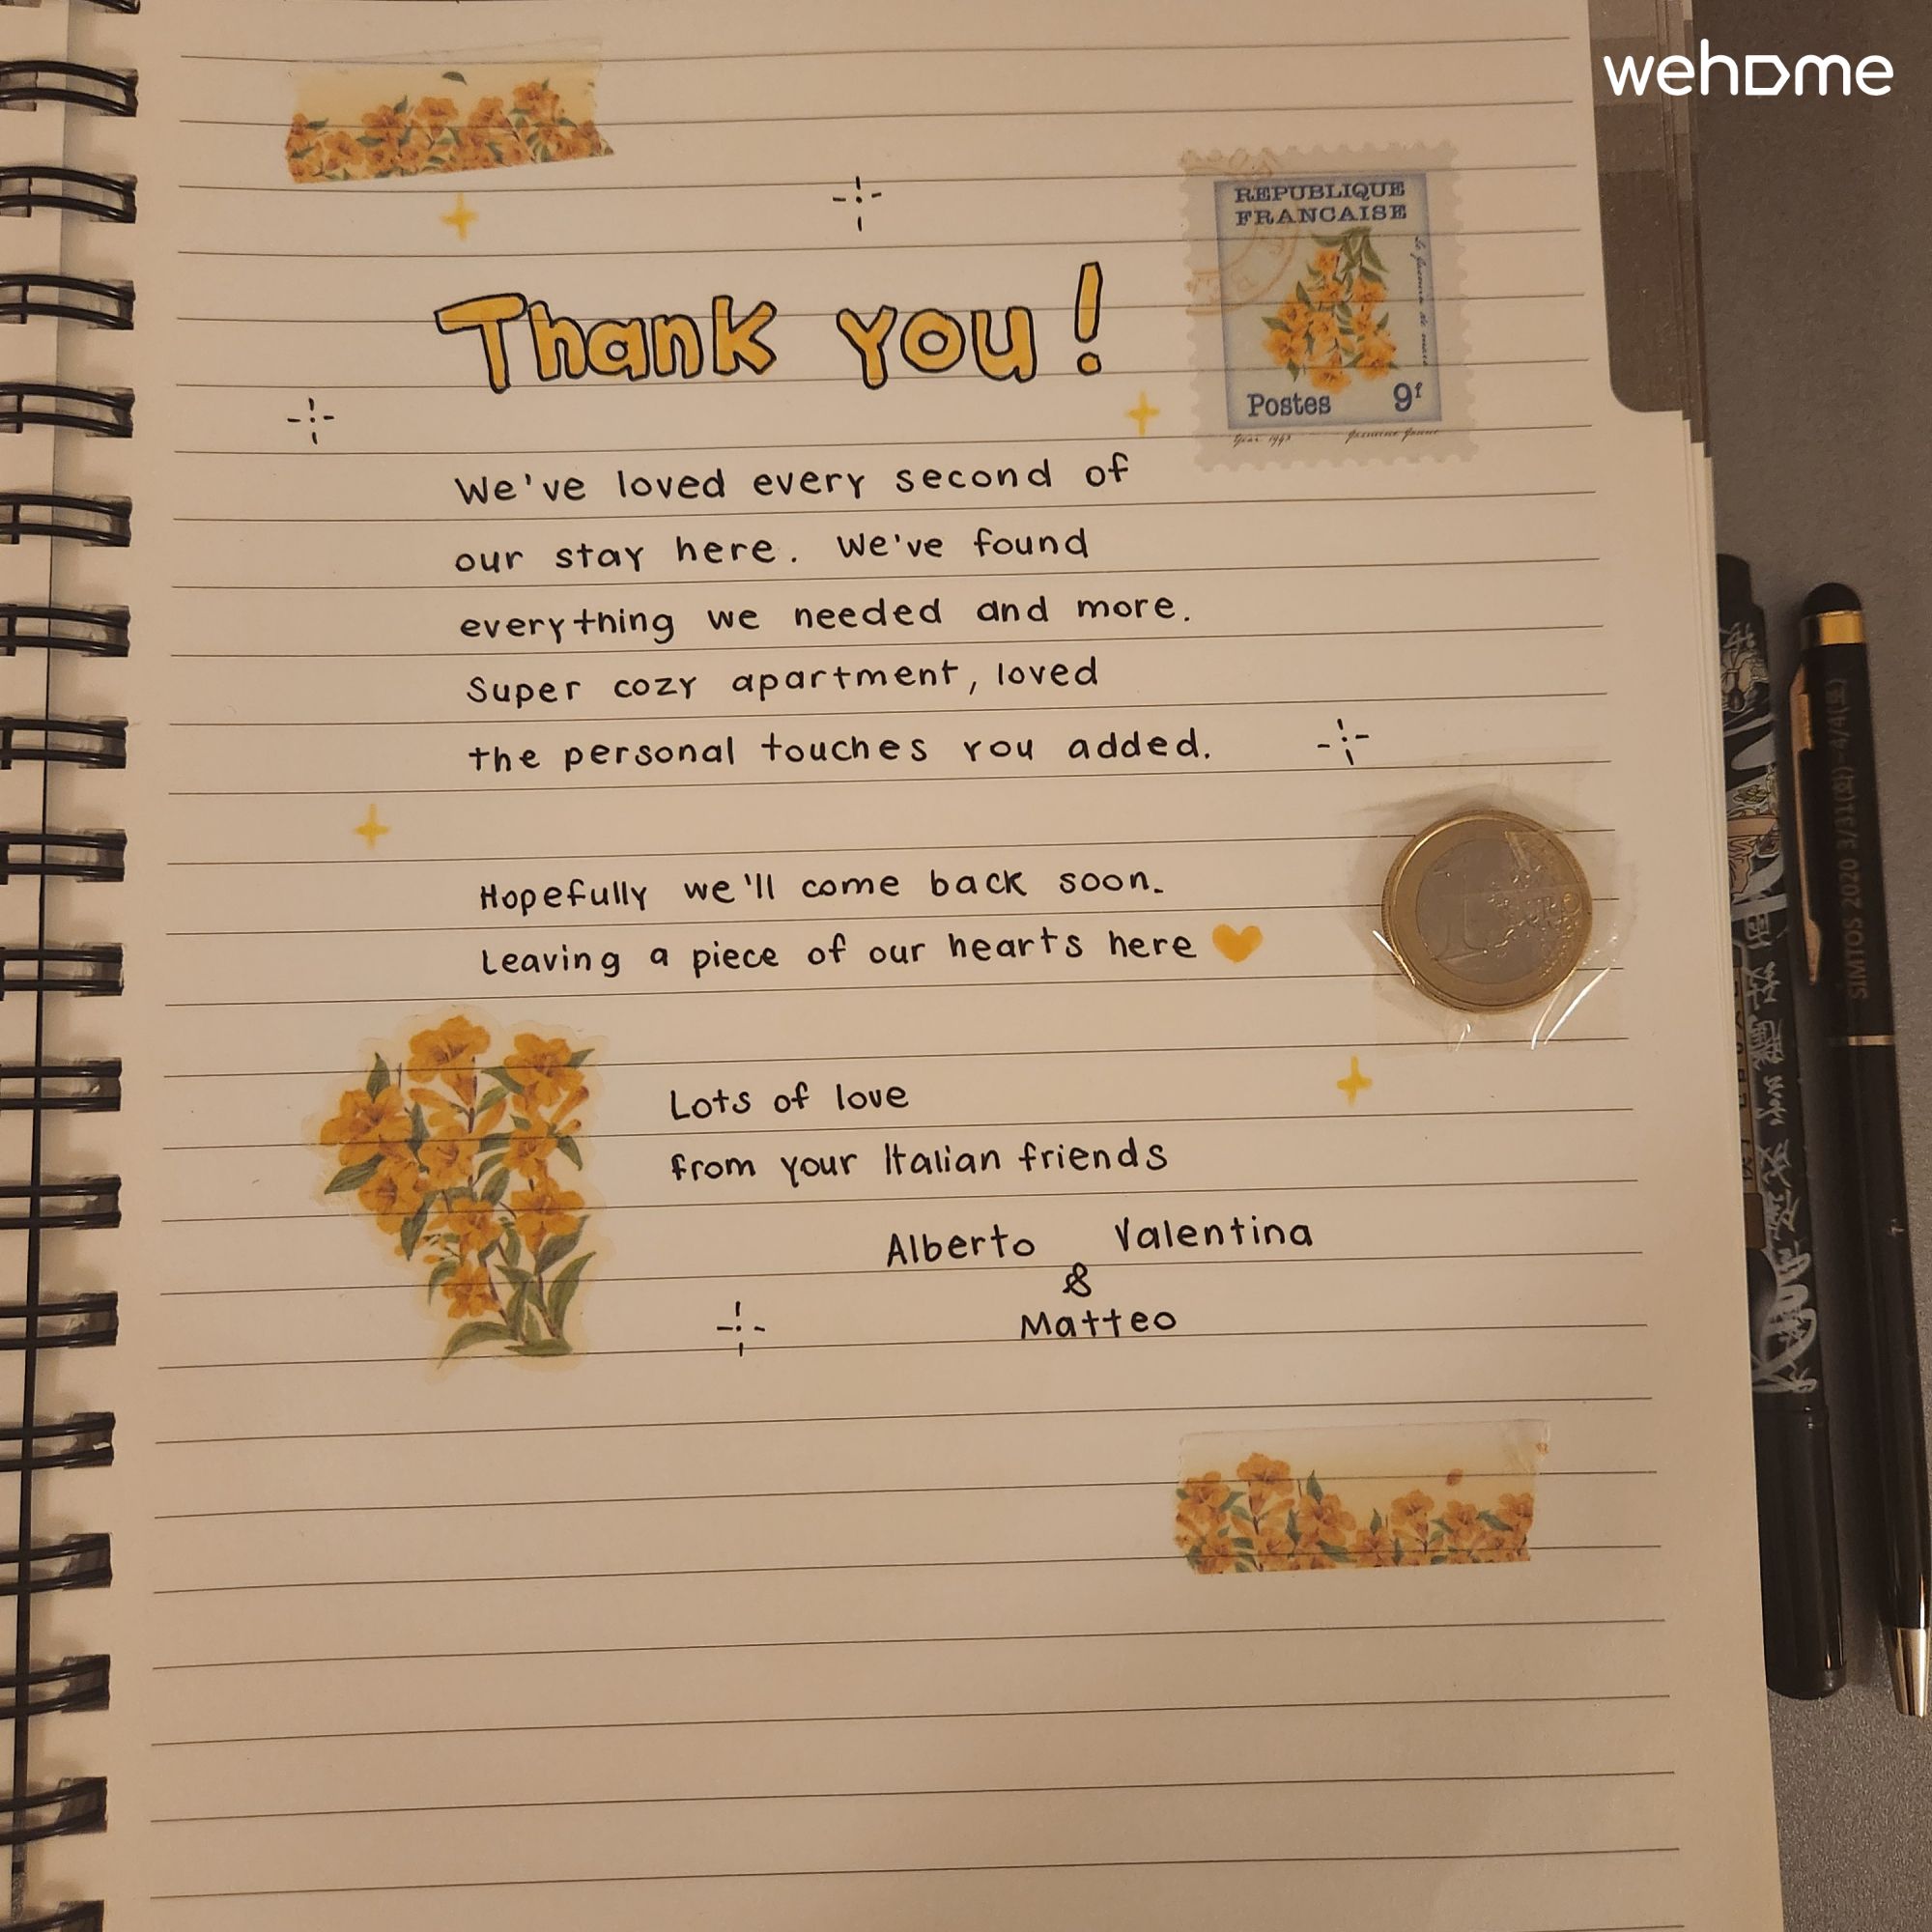 wehome
REPUBLIQUE
FRANCAISE
Thank you!
Postes 9f
We've loved every second of
our stay here. We've found
everything we needed and more.
Super cozy apartment, loved
the personal touches you added.
Hopefully we'll come back soon.
Leaving a piece of our hearts here
1 EURO
Lots of love
from your Italian friends
Alberto Valentina
&
Matteo
SIMTOS 2020 3/31(화)~4/4(토)